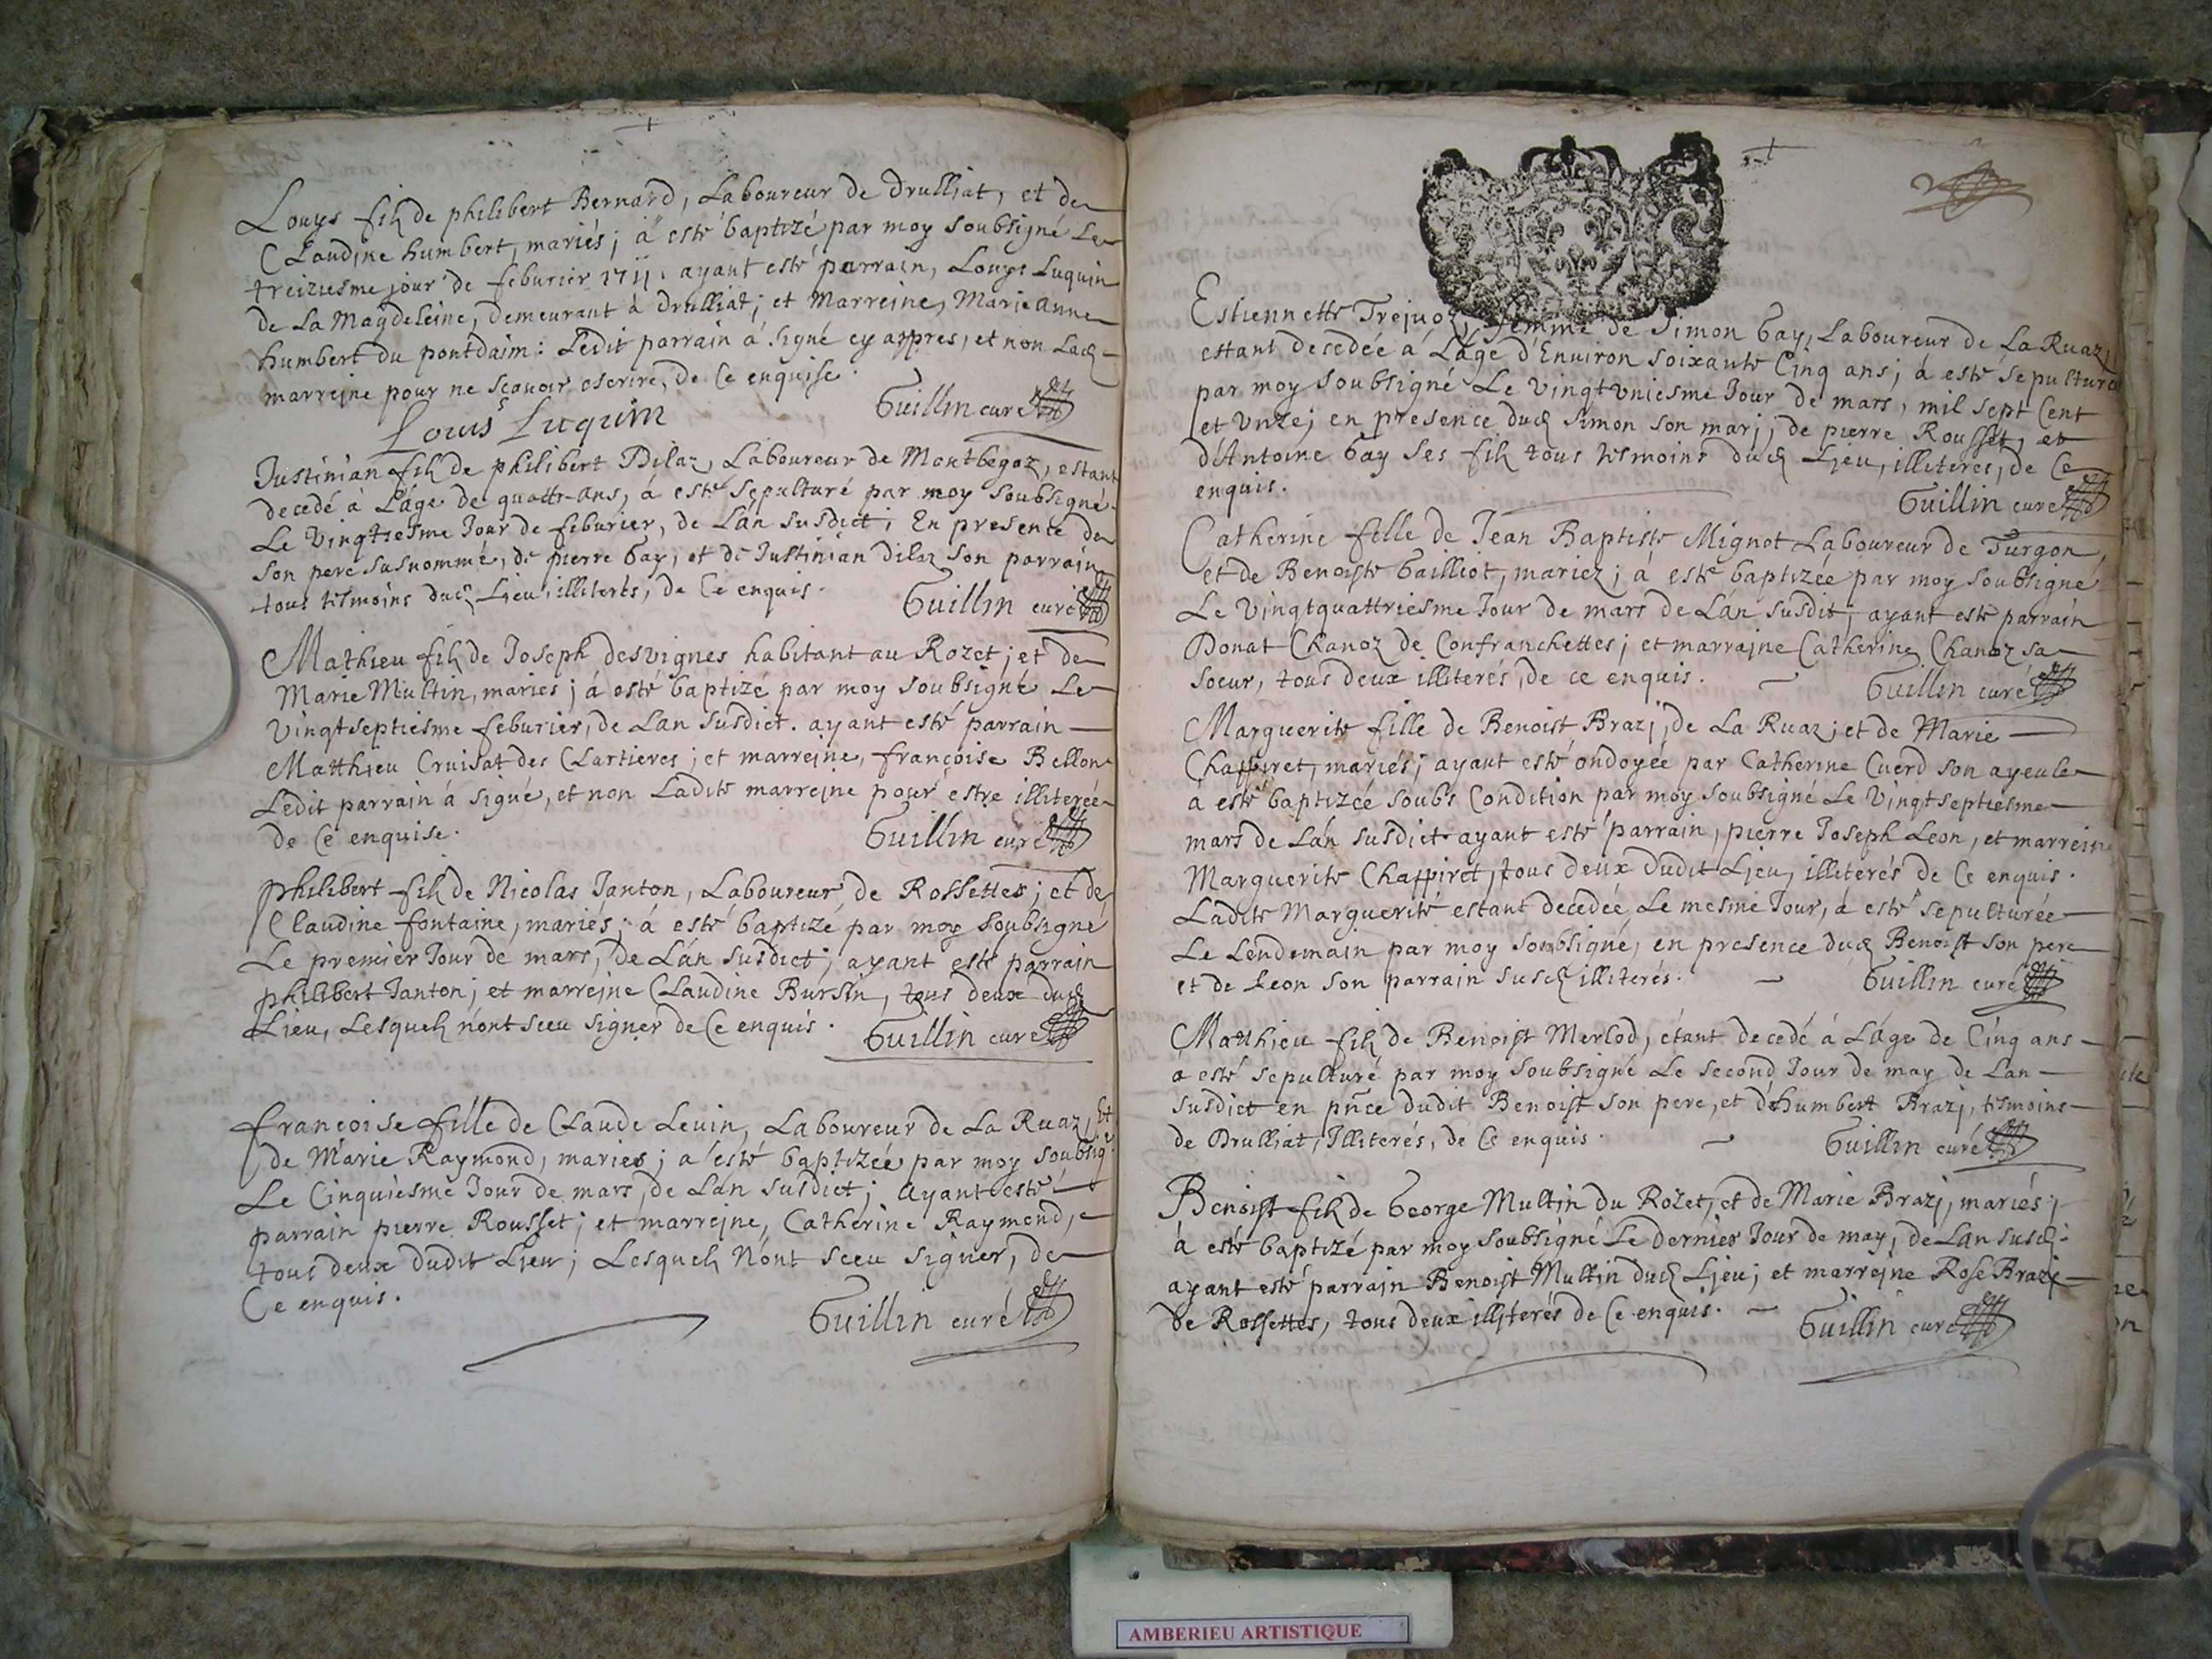 Louys fils de philibert Bernard, Laboureur de Drulliat, et de
Claudine humbert, mariés; á esté baptizé par moy soubsigné Le
treiziesme jour de feburier 1711. ayant esté parrain, Louys Luquin
de La Magdeleine, demeurant à Drulliat; et Marreine, Marie anne
humbert du pontdaim: Ledit parrain à signé cy appres, et non Lad
marreine pour ne scavoir escrire, de Ce enquise.
Louis Luquin Guillin curé
Justinian fils de philibert Dilaz, Laboureur de Montbegoz, estant
decedé à Láge de quattr-ans, á esté sepulturé par moy soubsigné
Le vingtiesme Jour de feburier, de Lán susdict; En presence de
son pere susnommé, de pierre Gay, et de Justinian dilaz son parrain
tous tesmoins dud Lieu illiterés, de Ce enquis. Guillin curé
Mathieu fils de Joseph desvignes habitant au Rozet; et de
Marie Multin, mariés; á esté baptizé par moy soubsigné Le
vingtseptiesme feburier, de Lan susdict. ayant esté parrain
Matthieu Cruisat des Clartieres; et marreine, françoise Bellon
Ledit parrain á signé, et non Ladite marreine pour estre illiterée
de Ce enquise. Guillin curé
philibert fils de Nicolas Janton, Laboureur de Rossettes; et de
Claudine fontaine, mariés; á esté baptizé par moy soubsigné
Le premier Jour de mars, de Lán susdict; ayant esté parrain
philibert Janton; et marreine Claudine Bursin, tous deux dud
Lieu, Lesquels nónt sceu signer de Ce enquis. Guillin curé
françoise fille de Claude Levin, Laboureur de La Ruaz, Et
de Marie Raymond, mariés; a esté baptizée par moy soubsig
Le Cinquiesme Jour de mars, de Lan susdict; Ayant esté
parrain pierre Rousset; et marreine, Catherine Raymond,
tous deux dudit Lieu; Lesquels Nónt sceu signer, de
Ce enquis. Guillin curé
Estiennette Trejuoz, femme de Simon Gay, Laboureur de La Ruaz,
estant decedée á Láge d'Environ soixante Cinq ans; á esté sepulturée
par moy soubsigné Le vingtvniesme Jour de mars, mil sept Cent
et vnze; en presence dud Simon son marj, de pierre Rousset, et
dAntoine Gay ses fils tous tesmoins dud Lieu, illiteres, de Ce
enquis. Guillin curé
Catherine fille de Jean Baptiste Mignot Laboureur de Turgon,
et de Benoiste Gailliot, mariez; á esté baptizée par moy soubsigné
Le vingtquattriesme Jour de mars de Lán susdit; ayant esté parrain
Donat Chanoz de Confranchettes; et marraine Catherine Chanoz sa
soeur, tous deux illiterés, de ce enquis. Guillin curé
Marguerite fille de Benoist Brazj, de La Ruaz; et de Marie
Chappiret, mariés; ayant esté ondoyée par Catherine Cuerd son ayeule
á esté baptizée soubs Condition par moy soubsigné Le vingtseptiesme
mars de Lán susdict ayant esté parrain, pierre Joseph Leon, et marrein
Marguerite Chappiret, tous deux dudit Lieu, illiterés de Ce enquis.
Ladite Marguerite estant decedée Le mesme Jour, á esté sepulturée
Le Lendemain par moy soubsigné, en presence dud Benoist son pere
et de Leon son parrain susd illiterés. Guillin curé
Matthieu fils de Benoist Merlod, étant decedé á Láge de Cinq ans
a esté sepulturé par moy soubsigné Le second Jour de may de Lan
susdict en pñce dudit Benoist son pere, et dehumbert Brazj, tesmoins
de Drulliat, Illiterés, de Ce enquis. Guillin curé
Benoist fils de George Multin du Rozet, et de Marie Brazj, mariés;
á esté baptizé par moy soubsigné Le dernier Jour de may, de Lan susd:
ayant esté parrain Benoist Multin dud Lieu; et marreine Rose Brazj
de Rossettes, tous deux illiterés de Ce enquis. Guillin curé
AMBERIEU ARTISTIQUE